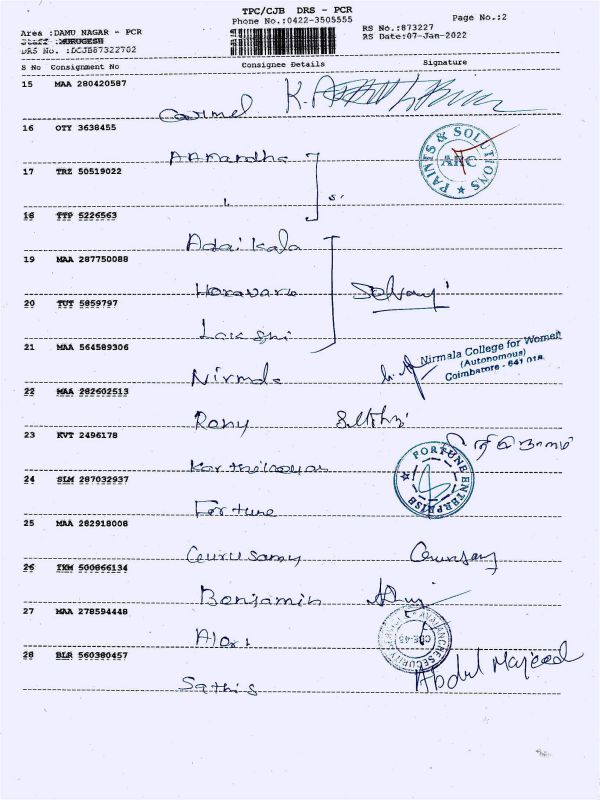 TPC/CJB DRS - PCR
Phone No.:0422-3505555
Page No.:2
Area :DAMU NAGAR - PCR
Staff :MURUGESH
DRS No. :DCJB87322702
RS No.:873227
RS Date:07-Jan-2022
S No Consignment No Consignee Details Signature
15 MAA 280420587
Carmel
16 OTY 3638455
PAINTS & SOLUTIONS
ARC
17 TRZ 50519022
18 TTP 5226563
Adaikala
19 MAA 287750088
Selvaraj
20 TUT 5859797
21 MAA 564589306
Nirmala College for Women
(Autonomous)
Coimbatore - 641 018.
Nirmala
22 MAA 282602513
Rony
23 KVT 2496178
24 SLM 287032937
FORTUNE ENTERPRISE
Fortune
25 MAA 282918008
Gurusamy Gurusamy
26 TKM 500866134
Benjamin
27 MAA 278594448
Alert
28 BLR 560380457
Abdul Majeed
Sathis